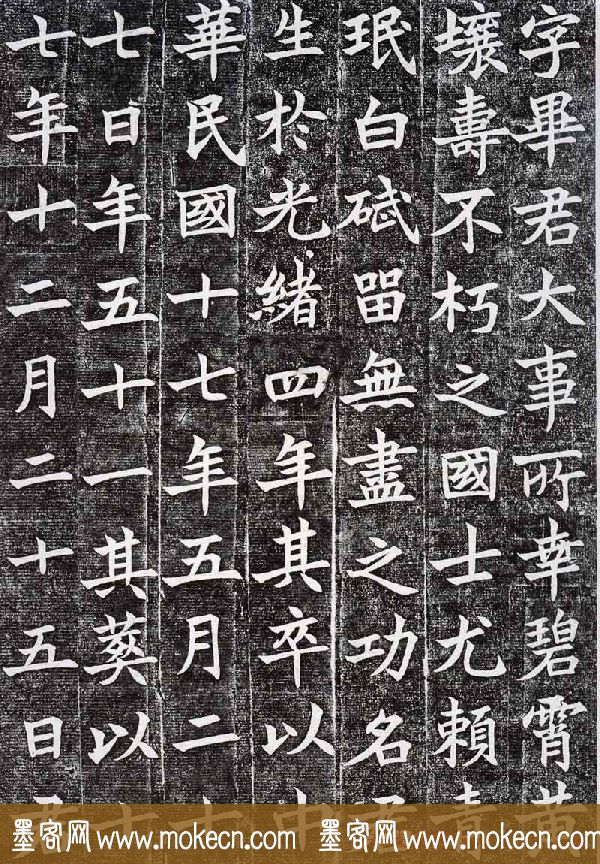 字畢君大事所幸碧霄黃
壤壽不朽之國士尤賴
珉白碔留無盡之功名
生於光緒四年其卒以中
華民國十七年五月二十
七日年五十一其葬以十
七年十二月二十五日
墨客网 www.mokecn.com 墨客网 www.mokecn.com